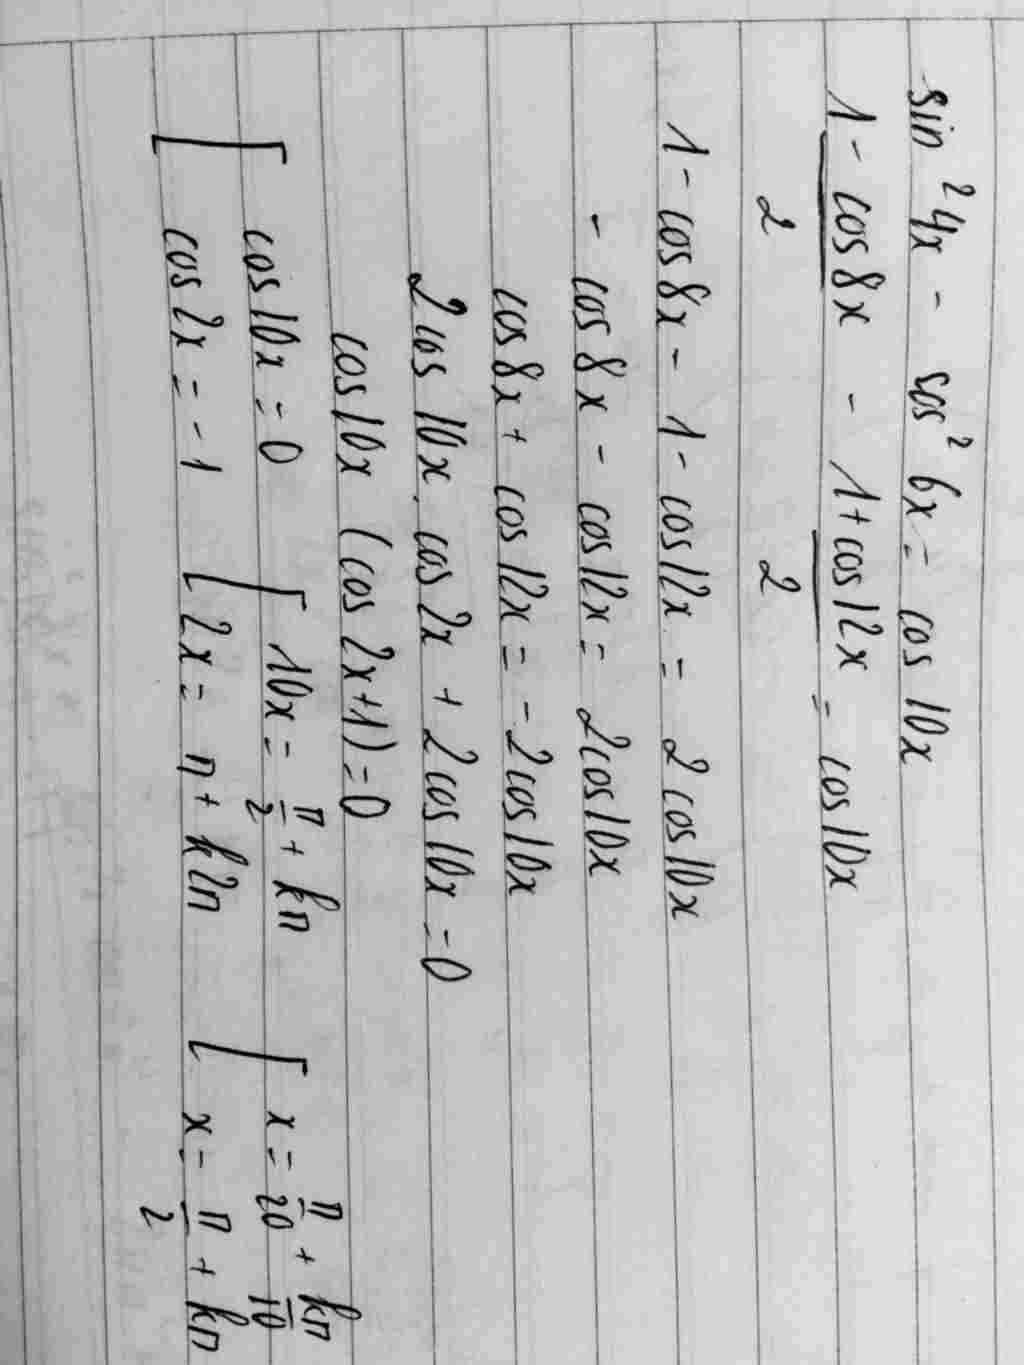 sin²4x - cos²6x = cos 10x
1 - cos8x / 2 - 1 + cos12x / 2 = cos10x
1 - cos8x - 1 - cos12x = 2cos10x
- cos8x - cos12x = 2cos10x
cos8x + cos12x = -2cos10x
2cos10x . cos2x + 2cos10x = 0
cos10x (cos2x+1) = 0
[ cos10x = 0 [ 10x = π/2 + kπ [ x = π/20 + kπ/10
cos2x = -1 2x = π + k2π x = π/2 + kπ